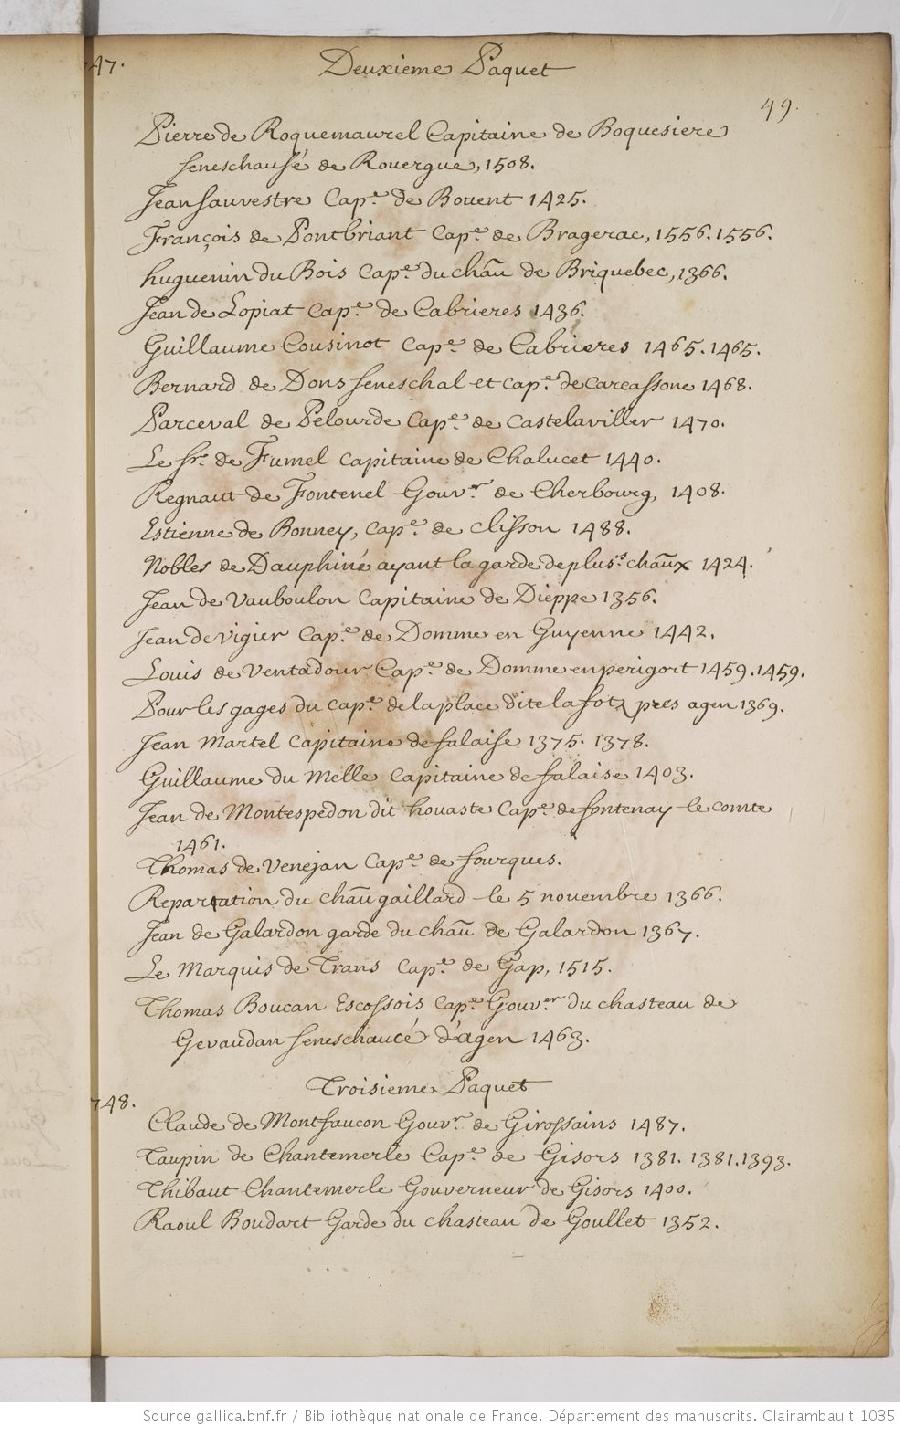 747. Deuxieme Paquet
49.
Pierre de Roquemaurel Capitaine de Boquesiere
seneschaussé de Rouergue, 1508.
Jean Sauvestre Cap.e de Bouent 1425.
François de Pontbriant Cap.e de Bragerac, 1556. 1556.
huguenin du Bois Cap.e du chãu de Briquebec, 1366.
Jean de Lopiat Cap.e de Cabrieres 1436.
Guillaume Cousinot Cap.e de Cabrieres 1465. 1465.
Bernard de Dons seneschal et cap.e de carcassone 1468.
Parceval de Pelourde Cap.e de Castelaviller 1470.
Le Sr. de Fumel Capitaine de Chalucet 1440.
Regnaut de Fontenel Gouv.r de Cherbourg, 1408.
Estienne de Bonney, Cap.e de Clisson 1488.
Nobles de Dauphiné ayant la garde de plus.rs chãux 1424.
Jean de Vauboulon Capitaine de Dieppe 1356.
Jean de Vigier Cap.e de Domme en Guyenne 1442.
Louis de Ventadour Cap.e de Domme en perigort 1459. 1459.
Pour les gages du cap.e de la place dite la fotz pres agen 1369.
Jean Martel Capitaine de falaise 1375. 1378.
Guillaume du Melle Capitaine de falaise 1403.
Jean de Montespedon dit houaste Cap.e de fontenay le comte
1461.
Thomas de Venejan Cap.e de fourques.
Repartation du chãu gaillard le 5 novembre 1366.
Jean de Galardon garde du chãu de Galardon 1367.
Le Marquis de Trans Cap.e de Gap, 1515.
Thomas Boucan Escossois Cap.e Gouv.er du chasteau de
Gevaudan seneschaucé d'agen 1463.
Troisieme Paquet
748.
Claude de Montfaucon Gouv.r de Girossains 1487.
Taupin de Chantemerle Cap.e de Gisors 1381. 1381. 1393.
Thibaut Chantemerle Gouverneur de Gisors 1400.
Raoul Boudart Garde du chasteau de Goullet 1352.
Source gallica.bnf.fr / Bibliothèque nationale de France. Département des manuscrits. Clairambault 1035